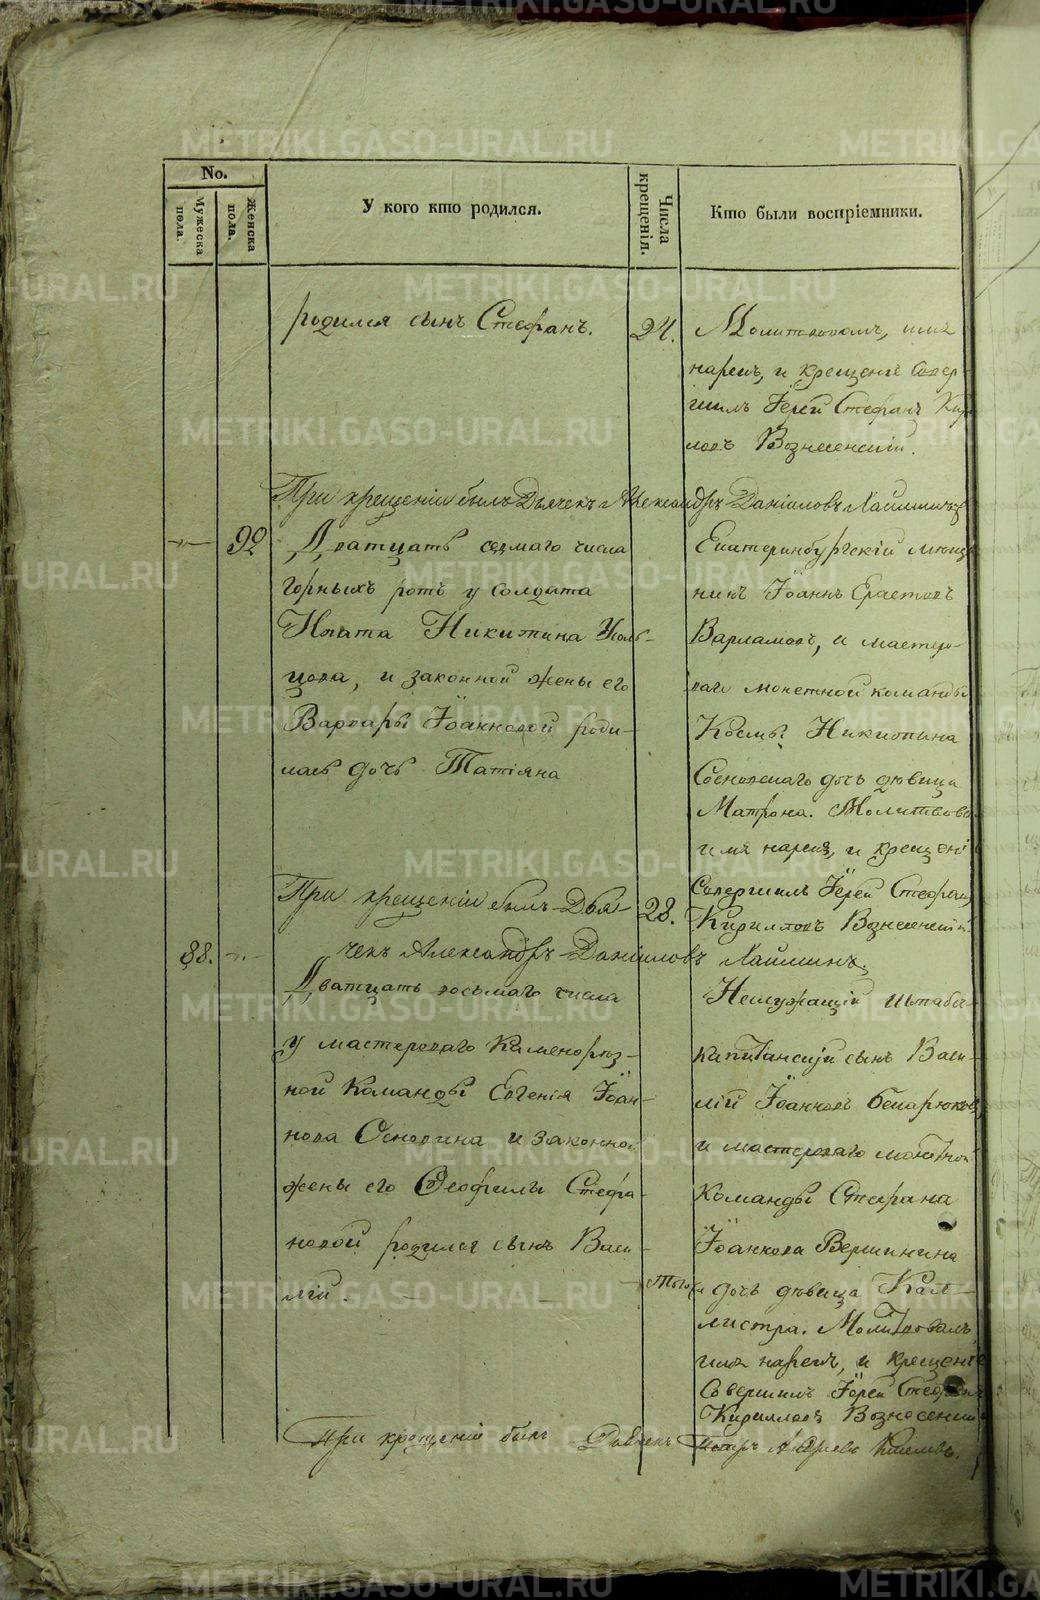 No.
Мужеска пола.
Женска пола.
У кого кто родился.
Числа крещенія.
Кто были воспріемники.
родился сынъ Стефанъ.
24.
Молитвовалъ, имя
нарекъ, и крещеніе совер-
шилъ Іерей Стефанъ Кири
ловъ Вознесенскій.
При крещеніи былъ Дьячекъ Александръ Даніиловъ
90
Дватцать седмаго числа
горныхъ ротъ у солдата
Игната Никитина
цова, и законной жены его
Варвары Іоанновой роди-
лась дочь Татіяна
28.
Екатеринбургскій мѣща
нинъ Іоаннъ Ерастовъ
Варламовъ, и мастеро-
ваго монетной команды
Космы Никитина
Сосновскаго дочь дѣвица
Матрона. Молитвовалъ
имя нарекъ, и крещеніе
Совершилъ Іерей Стефанъ
Кирилловъ Вознесенскій.
При крещеніи былъ Дья-
чекъ Александръ Даніиловъ
88.
Дватцать восьмаго числа
у мастероваго Каменорѣз-
ной Команды Евгенія Іоан-
нова Осколина и законной
жены его Феофилы Стефа-
новой родился сынъ Васи-
лій.
Того ж
Неслужащій Штабсъ-
капитанскій сынъ Васи-
лій Іоанновъ
и мастероваго монетной
команды Стефана
Іоаннова Вершинина
дочь дѣвица Кал-
листра. Молитвовалъ,
имя нарекъ, и крещеніе
Совершилъ Іерей Стефанъ
Кирилловъ Вознесенскій
При крещеніи былъ Дьячекъ Петръ
METRIKI.GASO-URAL.RU